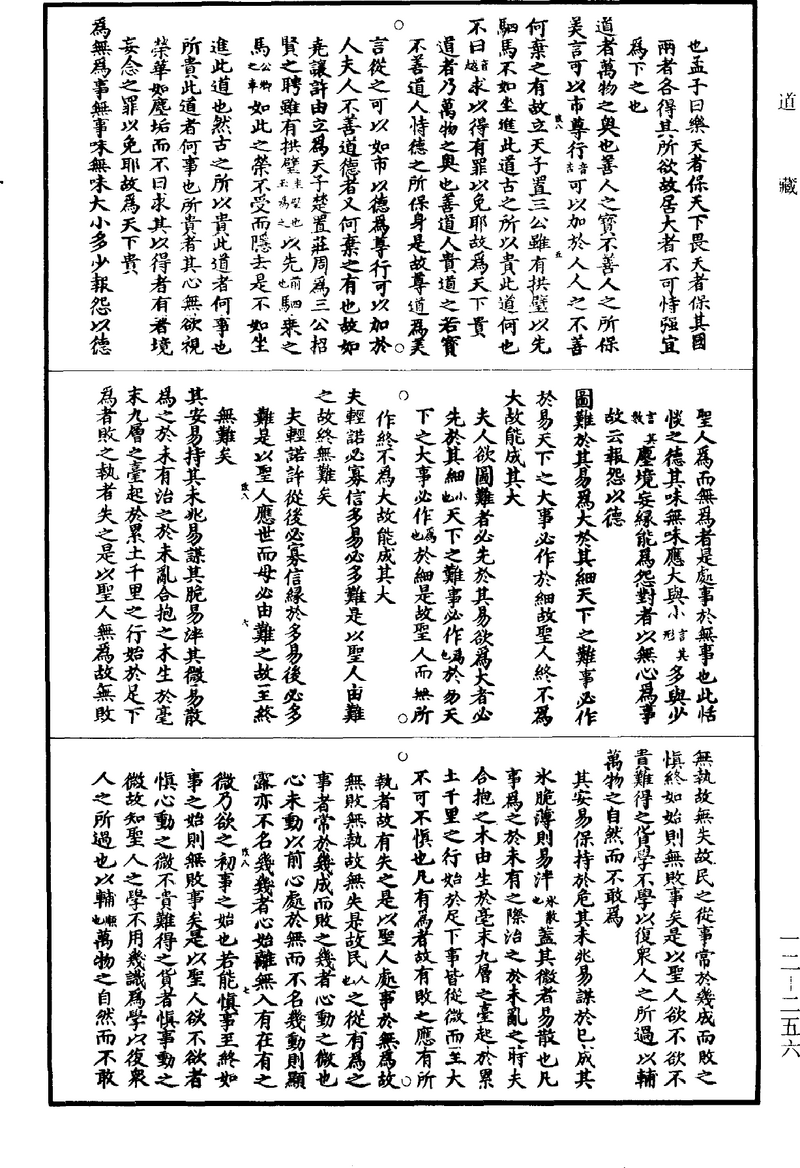 道藏
也孟子曰樂天者保天下畏天者保其國
兩者各得其所欲故居大者不可恃强宜
爲下之也
道者萬物之奧也善人之寶不善人之所保
美言可以市尊行可以加於人人之不善
何棄之有故立天子置三公雖有拱璧以先
駟馬不如坐進此道古之所以貴此道何也
不曰求以得有罪以免耶故爲天下貴
道者乃萬物之奧也善道人貴道之若寶
不善道人恃德之所保身是故尊道爲美
言從之可以如市以德爲尊行可以加於
人夫人不善道德者又何棄之有也故如
堯讓許由立爲天子楚置莊周爲三公招
賢之聘雖有拱璧以先前也駟乘之
馬公卿之車如此之榮不受而隱去是不如坐
進此道也然古之所以貴此道者何事也
所貴此道者何事也所貴者其心無欲視
榮華如塵垢而不曰求其以得者有著境
妄念之罪以免耶故爲天下貴
爲無爲事無事味無味大小多少報怨以德
聖人爲而無爲者是處事於無事也此恬
惔之德其味無味應大與小言其形多與少
言其數塵境妄緣能爲怨對者以無心爲事
故云報怨以德
圖難於其易爲大於其細天下之難事必作
於易天下之大事必作於細故聖人終不爲
大故能成其大
夫人欲圖難者必先於其易欲爲大者必
先於其細小也天下之難事必作爲也於易天
下之大事必作爲也於細是故聖人而無所
作終不爲大故能成其大
夫輕諾必寡信多易必多難是以聖人由難
之故終無難矣
夫輕諾許從後必寡信緣於多易後必多
難是以聖人應世而毋必由難之故一至終
無難矣
其安易持其未兆易謀其脆易泮其微易散
爲之於未有治之於未亂合抱之木生於毫
末九層之臺起於累土千里之行始於足下
爲者敗之執者失之是以聖人無爲故無敗
無執故無失故民之從事常於幾成而敗之
愼終如始則無敗事矣是以聖人欲不欲不
貴難得之貨學不學以復衆人之所過以輔
萬物之自然而不敢爲
其安易保持於危其未兆易謀於已成其
氷脆薄則易泮氷散也蓋其微者易散也凡
事爲之於未有之際治之於未亂之時夫
合抱之木由生於毫末九層之臺起於累
土千里之行始於足下事皆從微而至大
不可不愼也凡有爲者故有敗之應有所
執者故有失之是以聖人處事於無爲故
無敗無執故無失是故民人也之從有爲之
事者常於幾成而敗之幾者心動之微也
心未動以前心處於無而不名幾動則顯
露亦不名幾幾者心始離無入有在有之
微乃欲之初事之始也若能愼事至終如
事之始則無敗事矣是以聖人欲不欲者
愼心動之微不貴難得之貨者愼事動之
微故知聖人之學不用幾識爲學以復衆
人之所過也以輔順也萬物之自然而不敢
一二—二五六